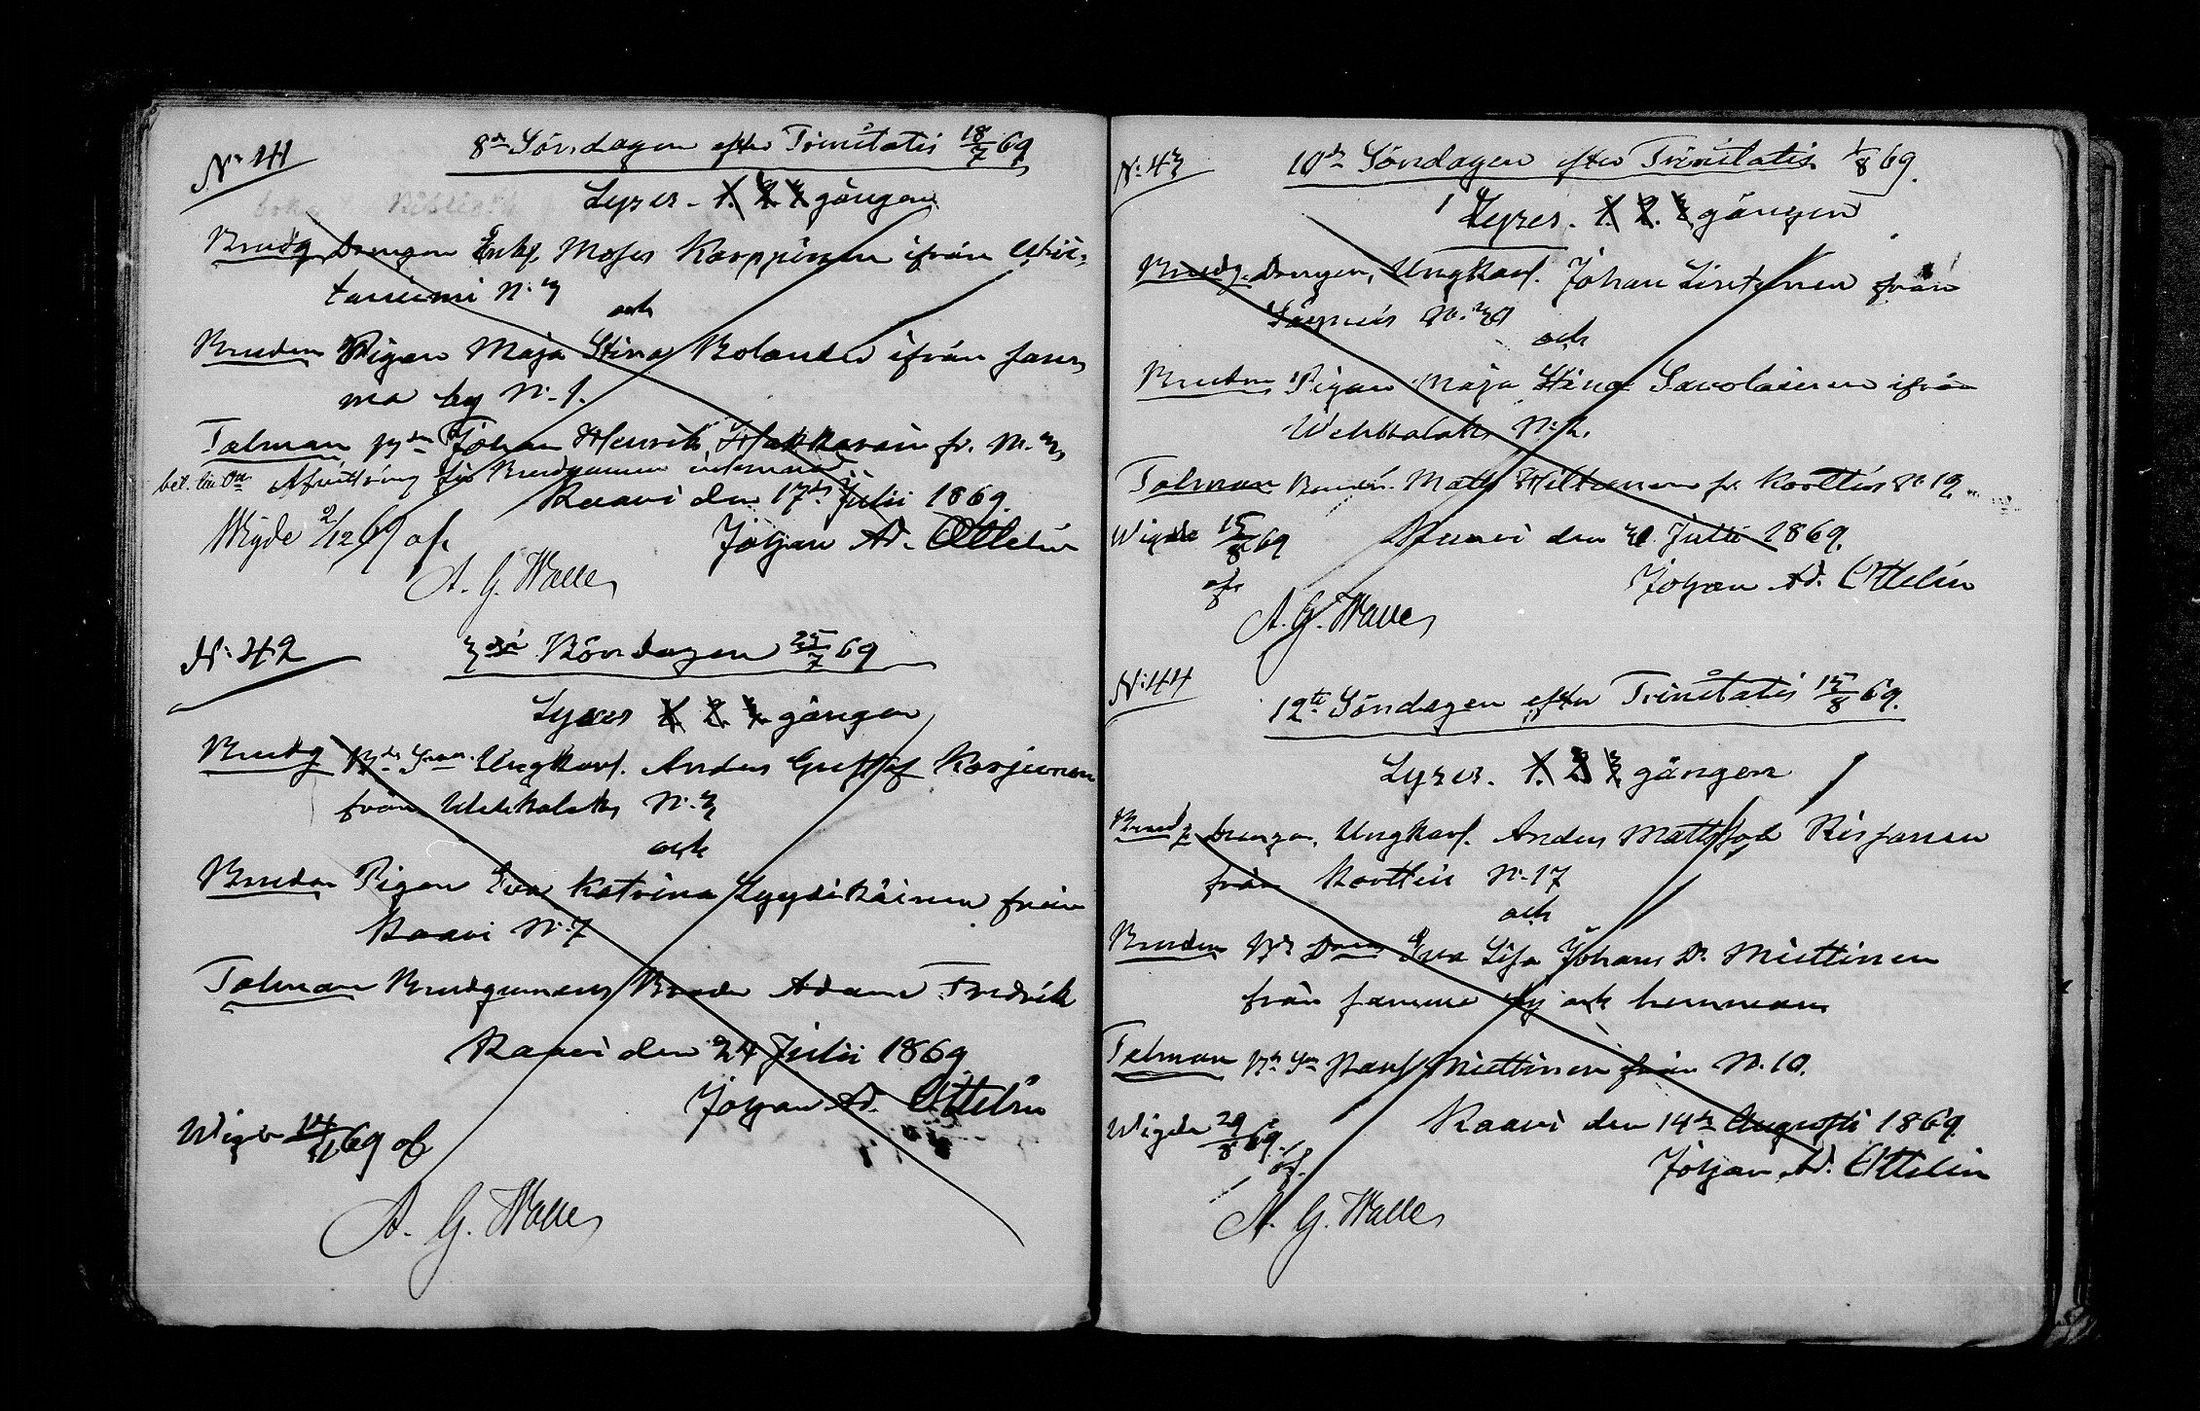 N:o 41
8de Söndagen efter Trinitatis 18/7 69
Lyses 1. 2. 3 gången
Brudg. Drengen Enkl. Moses Karppinen ifrån
taniemi N:o 3
och
Bruden Pigan Maja Stina Bolander ifrån sam
ma by N:o 1.
Talman Johan Henrik Hakkarain fr. N:o 3
för Brudgummen
Kaavi den 17de Julii 1869
Wigde 2/12 69 af
Johan Ad. Ottelin
A. G. Walle
N:o 42
3dje Böndagen 25/7 69
Lyses 1. 2. 3. gången
Brudg Bde Son. Ungkarl. Anders Gustaf Korjonen
från Wehkalaks N:o 3
och
Bruden Pigan Eva Katrina Lyydikäinen från
Kaavi N:o 7
Talman Brudgumens Broder Adam Fredrik
Kaavi den 24 Julii 1869
Johan Ad. Ottelin
Wigde 69 af
A. G. Walle
N:o 43
10de Söndagen efter Trinitatis 1/8 69.
Lyses. 1. 2. 3 gången
Brudg. Drengen, Ungkarl. Johan Lintunen från
N:o 30
och
Bruden Pigan Maja Stina Savolainen ifrån
Wehkalaks N:o 2.
Talman Matts Hiltunen fr. Kortteis N:o 19
Wigde 15/8 69
Kaavi den 31 Julii 1869.
af
Johan Ad. Ottelin
A. G. Walle
N:o 44
12te Söndagen efter Trinitatis 15/8 69.
Lyses. 1. 2 3 gången
Brudg drengen, Ungkarl. Anders Mattsson Rissanen
från Kortteis N:o 17
och
Bruden Eva Lisa Johans D. Miettinen
från samma by och hemman
Talman Bde Son Paul Miettinen från N:o 10.
Wigde 29/8 69.
Kaavi den 14de Augusti 1869
af.
Johan Ad. Ottelin
A. G. Walle